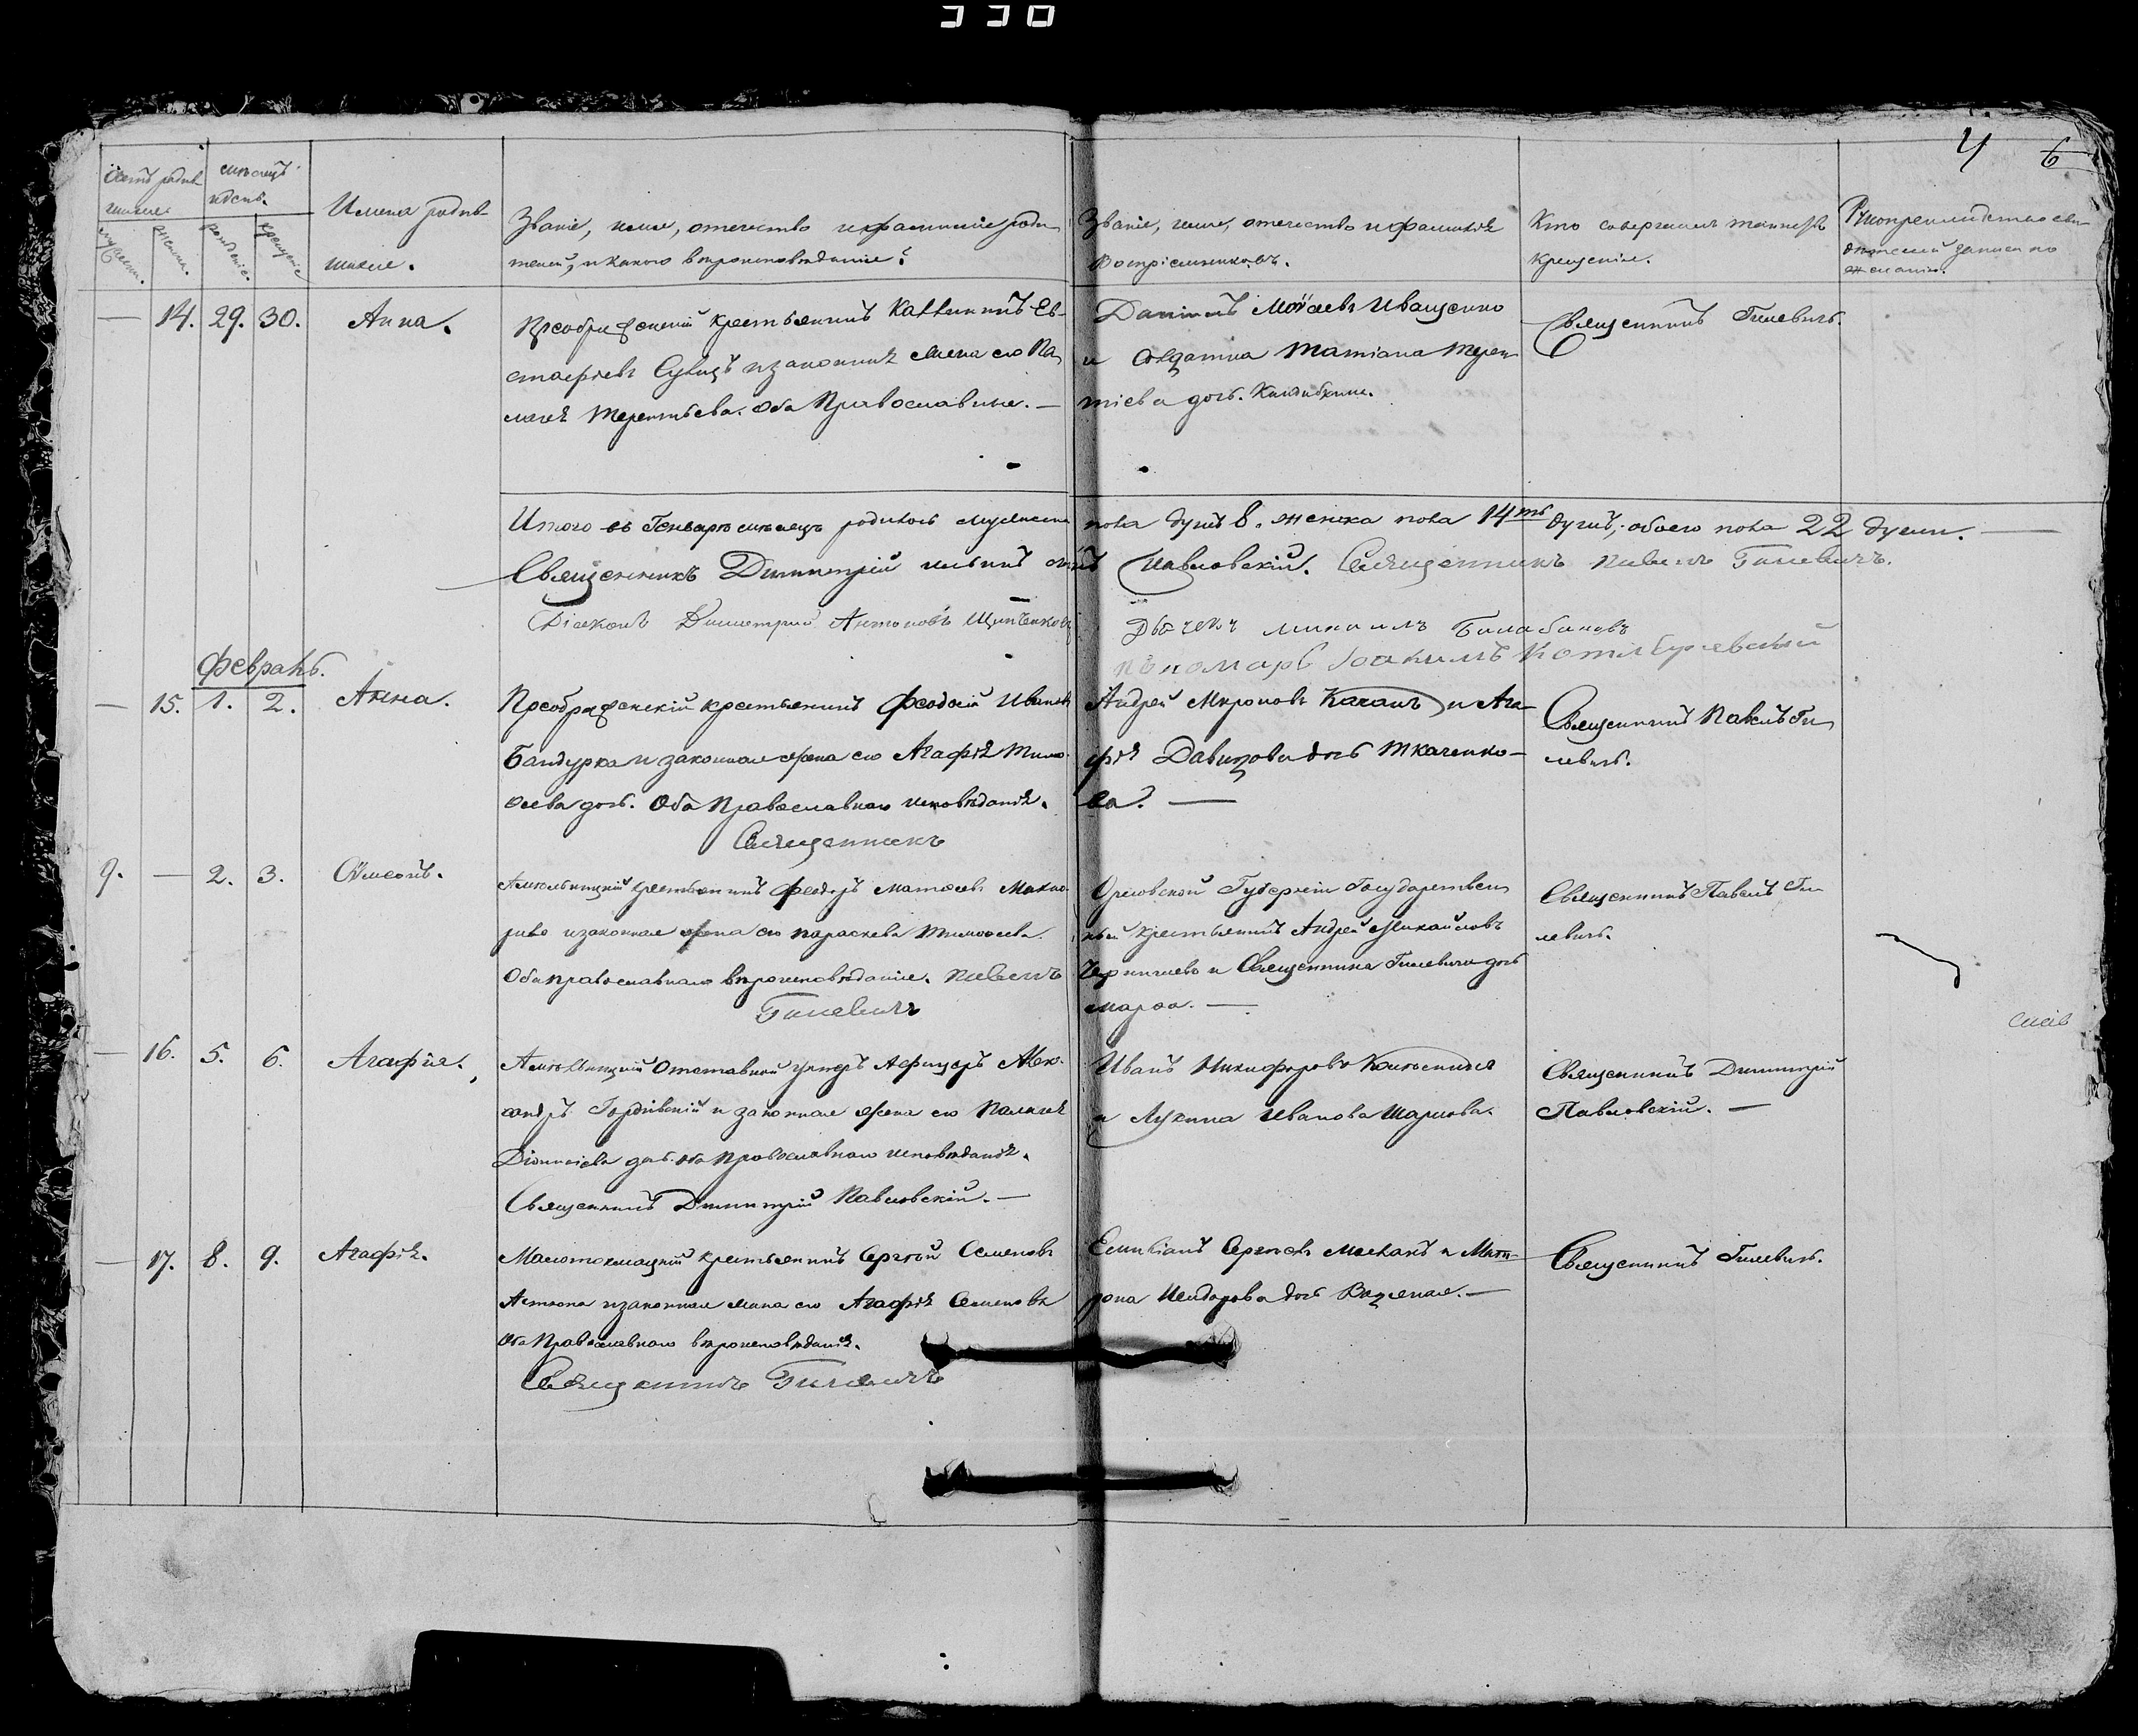 330
4 6
Счетъ родив
шихся.
мѣсяцъ
и день.
Имена родив-
шихся.
мужеск.
женск.
рожденіе.
крещеніе
Званіе, имя, отечество и фамилія роди
телей, и какого вѣроисповѣданія?
Званіе, имя, отечество и фамилія
Воспріемниковъ.
Кто совершалъ таинство
крещенія.
Рукоприкладство сви
дѣтелей записи по
желанію.
— 14. 29. 30. Анна.
Преображенскій крестьянинъ Каллиникъ Ев-
стафіевъ и законная жена его Пе
лагея Терентьева. Оба Православные. —
Даніилъ Моѵсеевъ Иващенко
и Солдатка Татіана Терен
тіева дочь.
Священникъ Гилевичъ.
Итого въ Генварѣ мѣсяцѣ родилось мужеска
пола душъ 8. женска пола 14ть душъ, обоего пола 22 души. —
Священникъ Димитрій
Павловскій. Священникъ Павелъ Гилевичъ.
Діаконъ Димитрій Антоновъ
Дьячекъ Михаилъ Балабановъ
Пономарь Іоакимъ Котляревскій
Февраль.
— 15. 1. 2. Анна.
Преображенскій крестьянинъ Феодосій Ивановъ
Бандурка и законная жена его Агафія Тимо
ѳеева дочь. Оба Православнаго исповѣданія.
Священникъ
Андрей Мироновъ Качанъ и Ага-
фія Давидова дочь Ткаченко-
ва. —
Священникъ Павелъ Ги
левичъ.
9. — 2. 3. Сѵмеонъ.
крестьянинъ Феодоръ Матѳеевъ
и законная жена его Параскева Тимоѳеева.
Оба православнаго вѣроисповѣданія. Павелъ
Гилевичъ
Орловской Губерніи Государствен
ный крестьянинъ Андрей Михайловъ
и Священника Гилевича дочь
Марѳа. —
Священникъ Павелъ Ги
левичъ.
— 16. 5. 6. Агафія.
Отставной унтеръ Афицеръ Алек-
сандръ и законная жена его Палагія
Діонисіева дочь. Оба Православнаго исповѣданія.
Священникъ Димитрій Павловскій. —
Иванъ Никифоровъ
и Лукина Иванова
Священникъ Димитрій
Павловскій. —
— 17. 8. 9. Агафія.
Малотокмацкій крестьянинъ Сергѣй Семеновъ
и законная жена его Агафія Семенова
Оба Православнаго вѣроисповѣданія.
Священникъ Гилевичъ
Емиліанъ Сергѣевъ и Мат-
рона Исидорова дочь
Священникъ Гилевичъ.